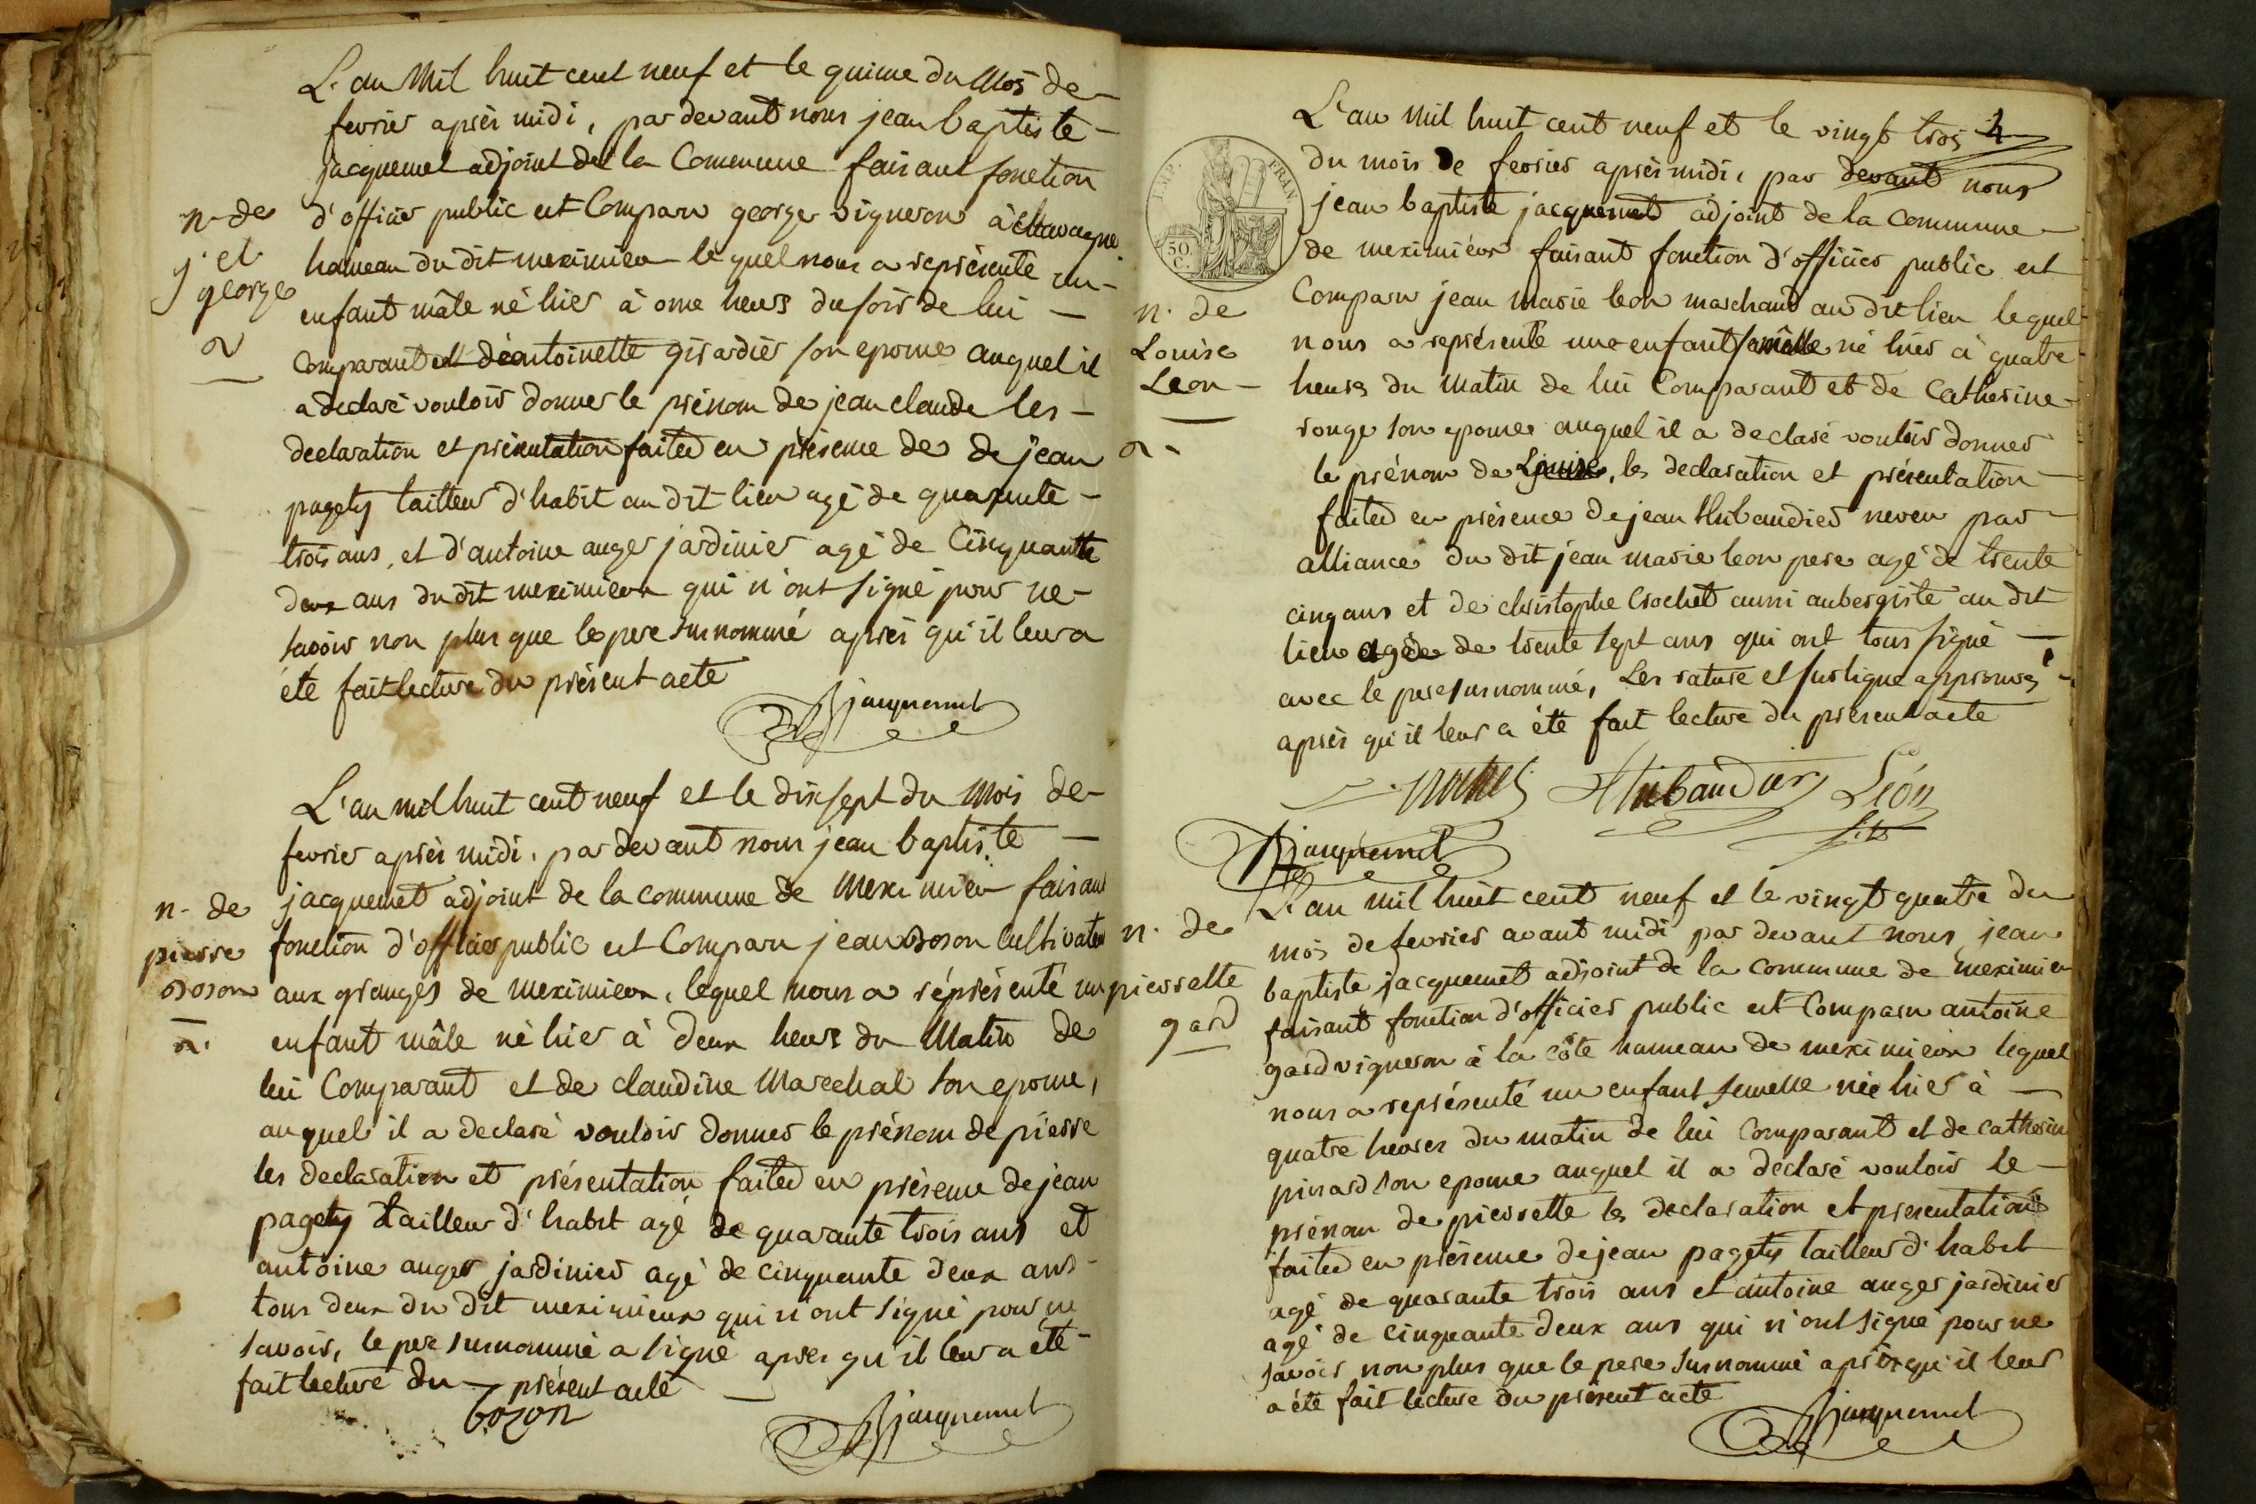 L'an Mil huit cent neuf et le quinze du Mois de
fevrier après midi, par devant nous jean baptiste
jacquemet adjoint de la Commune faisant fonction
n. de
j. cl.
george
d'officier public est Comparu george vigneron à
hameau du dit meximieux lequel nous a représenté un
enfant mâle né hier à onze heurs du soir de lui
comparant et de antoinette girardier son epouse auquel il
a declaré vouloir donner le prénom de jean claude les
declaration et présentation faites en présence de de jean
pagety tailleur d'habit au dit lieu agé de quarante
trois ans, et d'antoine auger jardinier agé de Cinquante
deux ans du dit meximieux qui n'ont signé pour ne
savoir non plus que le pere surnommé après qu'il leur a
été fait lecture du présent acte
jacquemet
L'an mil huit cent neuf et le dix sept du Mois de
fevrier après midi, par devant nous jean baptiste
n. de
pierre
Boson
jacquemet adjoint de la commune de Meximieux faisant
fonction d'officier public est Comparu jean Boson Cultivateur
aux granges de meximieux, lequel nous a réprésenté un
enfant mâle né hier à deux heurs du Matin de
lui Comparant et de claudine Marechal son epouse,
auquel il a declaré vouloir donner le prénom de pierre
les declaration et présentation faites en présence de jean
pagety tailleur d'habit agé de quarante trois ans et
antoine auger jardinier agé de cinquante deux ans
tous deux du dit meximieux qui n'ont signé pour ne
savoir, le pere surnommé a signé apres qu'il leur a été
fait lecture du présent acte
bozon
jacquemet
4
IMP. FRAN.
50 C.
L'an Mil huit cent neuf et le vingt trois
du mois de fevrier après midi, par devant nous
jean baptiste jacquemet adjoint de la commune
de meximieux faisant fonction d'officier public est
n. de
Louise
Leon
Comparu jean marie leon marchand au dit lieu lequel
nous a représenté une enfant femelle né hier à quatre
heurs du Matin de lui Comparant et de Catherine
rouge son epouse auquel il a declaré vouloir donner
le prénom de Louise, les declaration et présentation
faites en présence de jean thibaudier neveu par
alliance du dit jean marie leon pere agé de trente
cinq ans et de christophe Crochet aussi aubergiste au dit
lieu agé de trente sept ans qui ont tous signé
avec le pere surnommé, Les rature et surligne approuvés
après qu'il leur a été fait lecture du présent acte
Crochet Thibaudier Léon
jacquemet
n. de
pierrette
gard
L'an mil huit cent neuf et le vingt quatre du
mois de fevrier avant midi par devant nous jean
baptiste jacquemet adjoint de la commune de meximieux
faisant fonction d'officier public est Comparu antoine
gard vigneron à la côte hameau de meximieux lequel
nous a représenté un enfant femelle née hier à
quatre heures du matin de lui comparant et de catherine
pinard son epouse auquel il a declaré vouloir le
prénom de pierrette les declaration et presentation
faites en présence de jean pagety tailleur d'habit
agé de quarante trois ans et antoine auger jardinier
agé de cinquante deux ans qui n'ont signé pour ne
savoir non plus que le pere surnommé après qu'il leur
a été fait lecture du présent acte
jacquemet